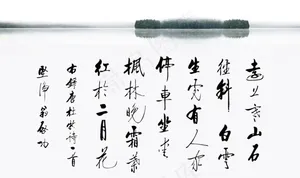 遠上寒山石
徑斜 白雲
生處有人家
停車坐愛
楓林晚霜葉
紅於二月花
唐杜牧詩一首
堅淨翁啟功